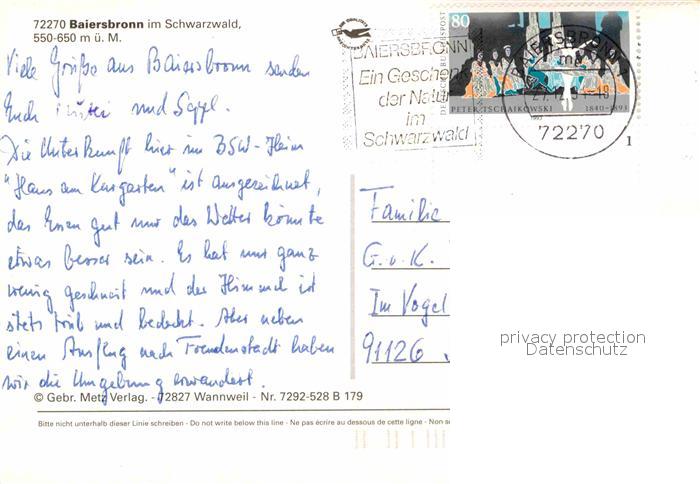 72270 Baiersbronn im Schwarzwald,
550-650 m ü. M.
Viele Grüße aus Baiersbronn senden
Euch und
Die Unterkunft hier im BSW-Heim
"Haus am Kurgarten" ist ausgezeichnet,
das Essen gut nur das Wetter könnte
etwas besser sein. Es hat nur ganz
wenig geschneit und der Himmel ist
stets trüb und bedeckt. Aber neben
einen Ausflug nach Freudenstadt haben
wir die Umgebung erwandert.
© Gebr. Metz Verlag. - 72827 Wannweil - Nr. 7292-528 B 179
Bitte nicht unterhalb dieser Linie schreiben - Do not write below this line - Ne pas écrire au dessous de cette ligne - Non s
BAIERSBRONN
Ein Geschenk
der Natur
im
Schwarzwald
80
DEUTSCHE BUNDESPOST
PETER TSCHAIKOWSKI 1840-1893
1993
BAIERSBRONN
mc
72270
1
Familie
G. u. K.
Im Vogel
91126
privacy protection
Datenschutz